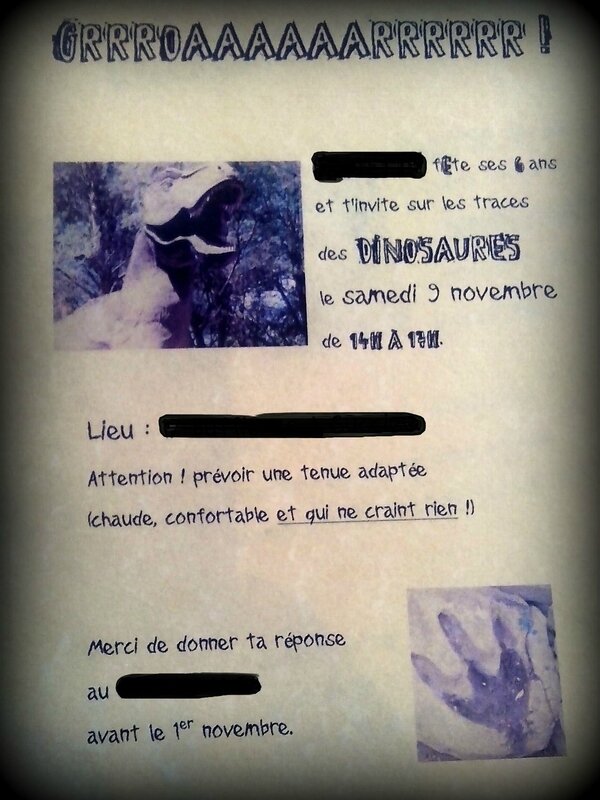 GRRROAAAAAAARRRRRR !
fête ses 6 ans
et t'invite sur les traces
des DINOSAURES
le samedi 9 novembre
de 14H À 17H.
Lieu :
Attention ! prévoir une tenue adaptée
(chaude, confortable et qui ne craint rien !)
Merci de donner ta réponse
au
avant le 1er novembre.